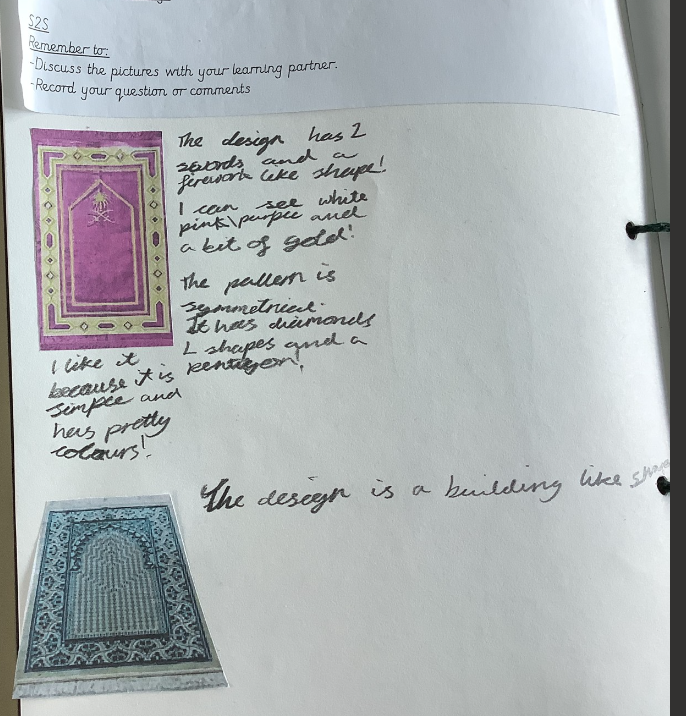 S2S
Remember to:
-Discuss the pictures with your learning partner.
-Record your question or comments
The design has 2
swords and a
firework like shape!
I can see white
pink\purple and
a bit of gold!
The pattern is
symmetrical.
It has diamonds
L shapes and a
pentagon!
I like it
because it is
simple and
has pretty
colours!
The design is a building like